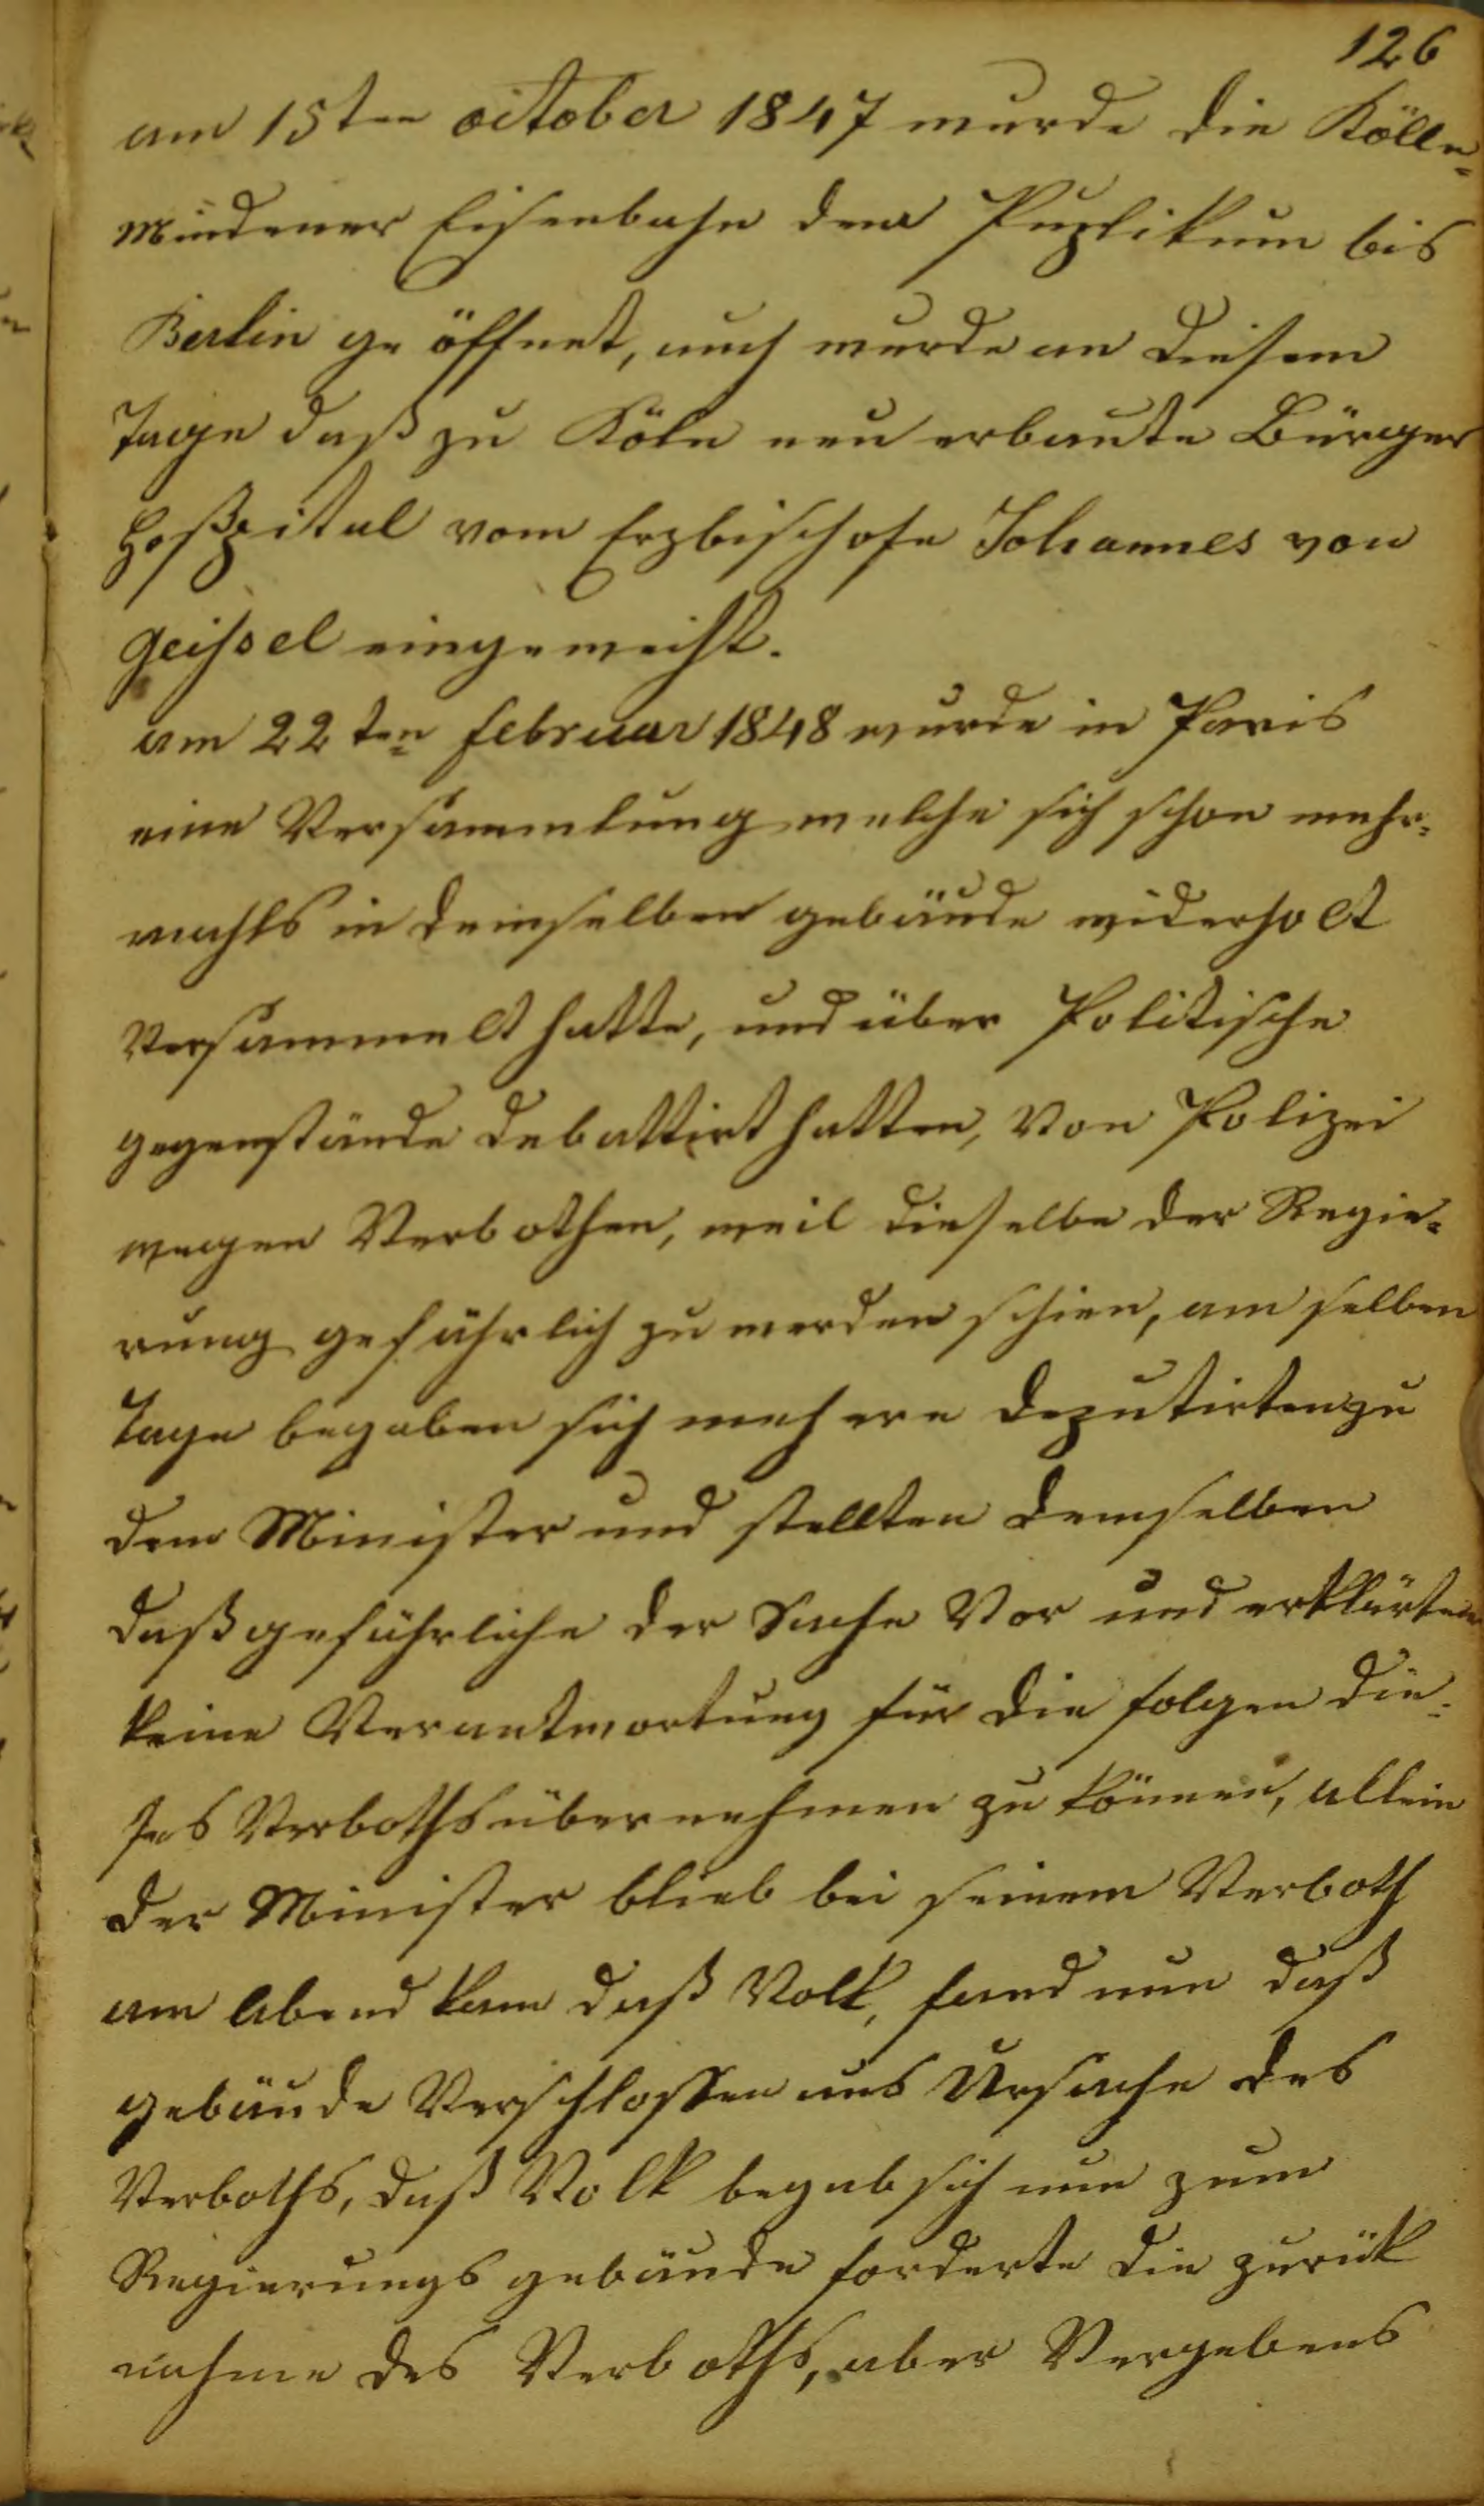 126
am 15ten october 1847 wurde die Kölln-
Mindener Eisenbahn dem Puplikum bis
Berlin geöffnet, auch wurde an diesem
Tage daß zu Köln neu erbaute Bürger
Hoßpital vom Erzbischofe Johannes von
Geissel eingeweiht.
am 22ten februar 1848 wurde in Paris
eine Versammlung welche sich schon mehr-
mahls in demselben gebäude widerholt
Versammelt hatte, und über Politische
gegenstände debattirt hatten, Von Polizei
wegen Verbothen, weil dieselbe der Regie-
rung gefährlich zu werden schien, am selben
Tage begaben sich mehere deputirten zu
dem Minister und stellten demselben
daß gefährliche der Sache Vor und erklärten
keine Verantwortung für die folgen die-
ses Verboths übernehmen zu können, allein
der Minister blieb bei seinem Verboth
am Abend kam daß Volk, fand nun daß
gebäude Verschlossen aus Ursache des
Verboths, daß Volk begab sich nun zum
Regierungs gebäude forderte die zurük
nahme des Verboths, aber Vergebens